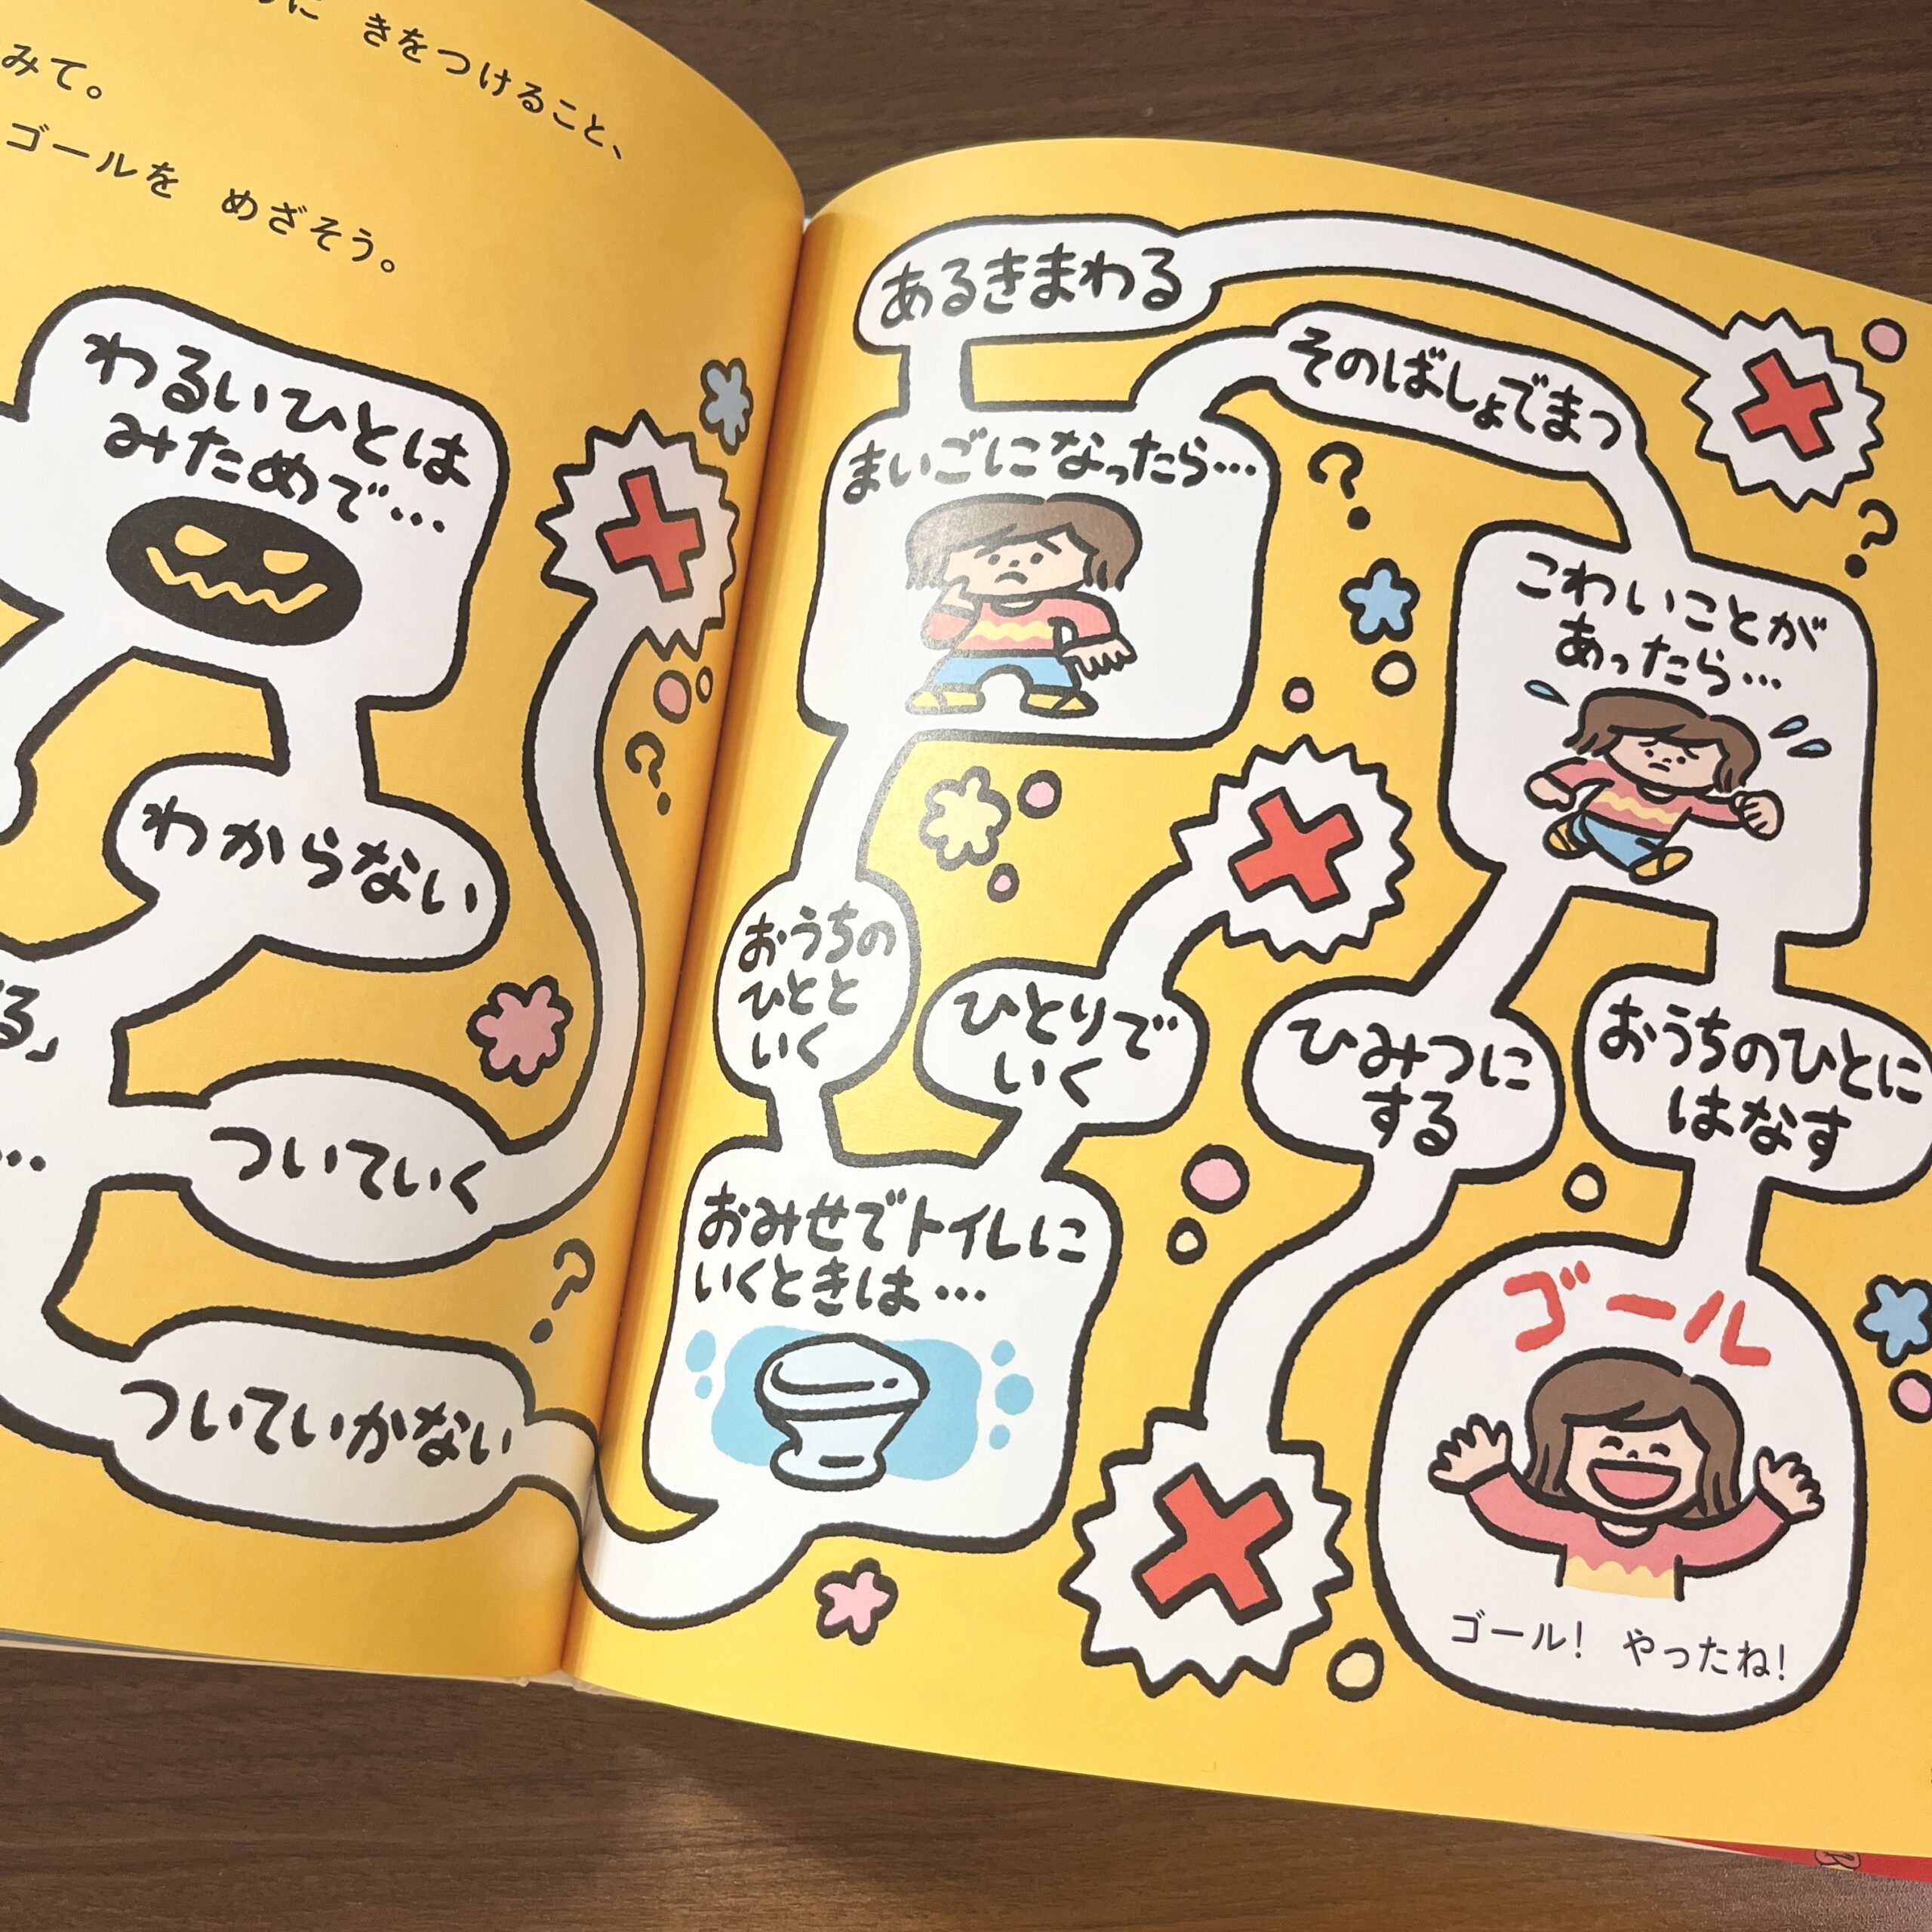 きをつけること、
みて。
ゴールを めざそう。
わるいひとは
みためで…
わからない
ついていく
ついていかない
あるきまわる
そのばしょでまつ
まいごになったら…
こわいことが
あったら…
おうちの
ひとと
いく
ひとりで
いく
ひみつに
する
おうちのひとに
はなす
おみせでトイレに
いくときは…
ゴール
ゴール! やったね!